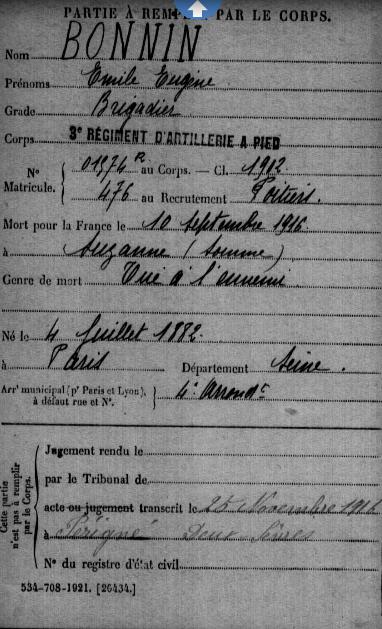 PARTIE À REMPLIR PAR LE CORPS.
BONNIN
Nom
Prénoms Emile Eugène
Grade Brigadier
Corps 3e RÉGIMENT D'ARTILLERIE A PIED
No Matricule. 01974 R au Corps. — Cl. 1912
476 au Recrutement Poitiers.
Mort pour la France le 10 septembre 1916
à Suzanne (Somme)
Genre de mort Tué à l'ennemi
Né le 4 Juillet 1882
à Paris Département Seine.
Arrt municipal (pr Paris et Lyon), à défaut rue et No. 4e Arrondt
Cette partie n'est pas à remplir par le Corps.
Jugement rendu le
par le Tribunal de
acte ou jugement transcrit le 25 Novembre 1916
à Périgné Deux Sèvres
No du registre d'état civil
534-708-1921. [26434.]